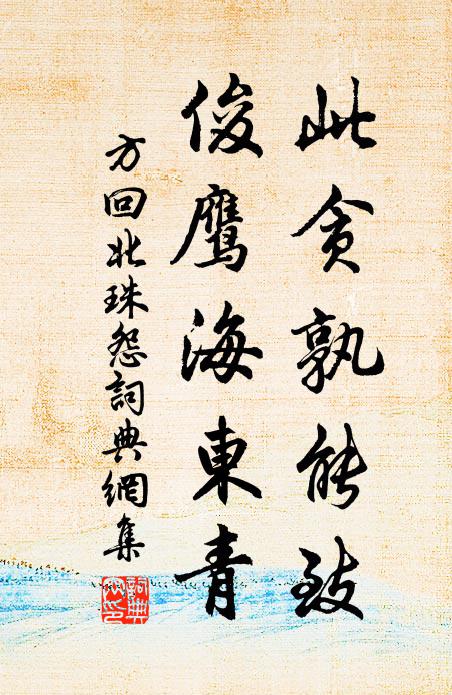 此贪孰能致
俊鹰海東青
方回北珠怨詞典網集